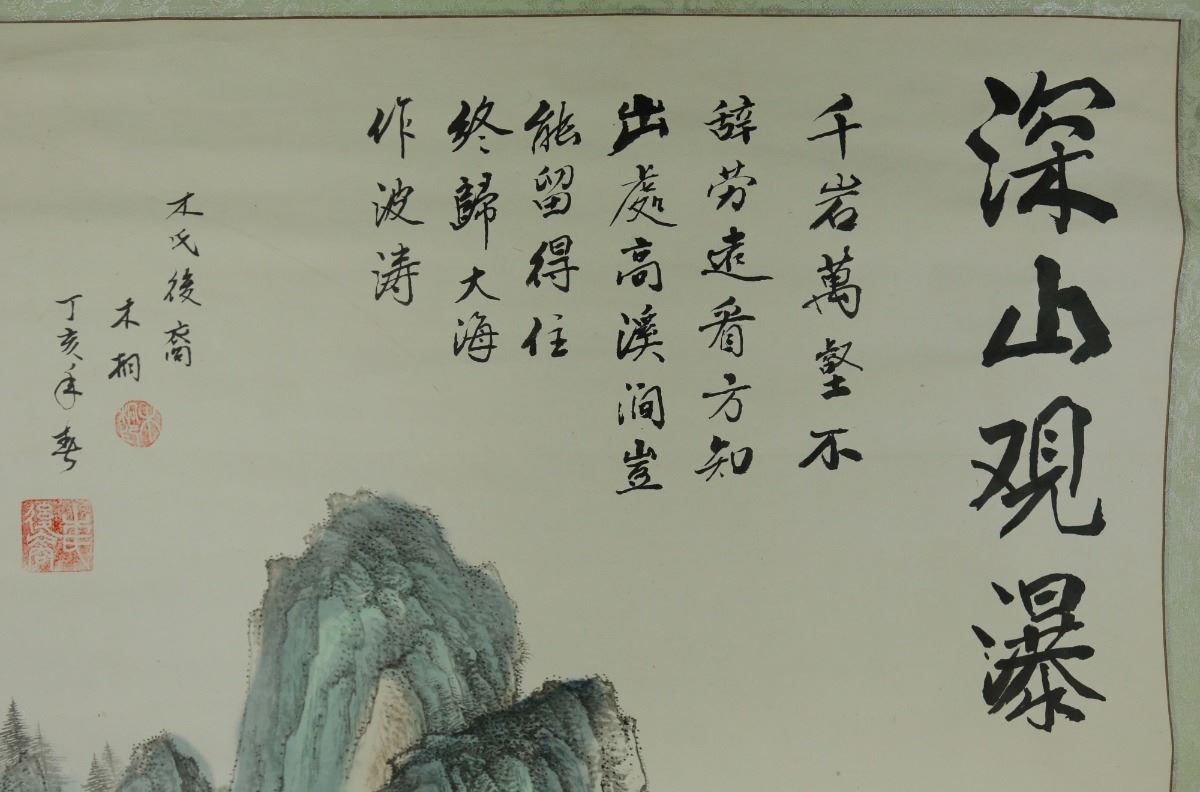 深山观瀑
千岩萬壑不
辞劳远看方知
出處高溪涧豈
能留得住
终歸大海
作波涛
木氏後裔
木桐
丁亥年春
木氏後裔